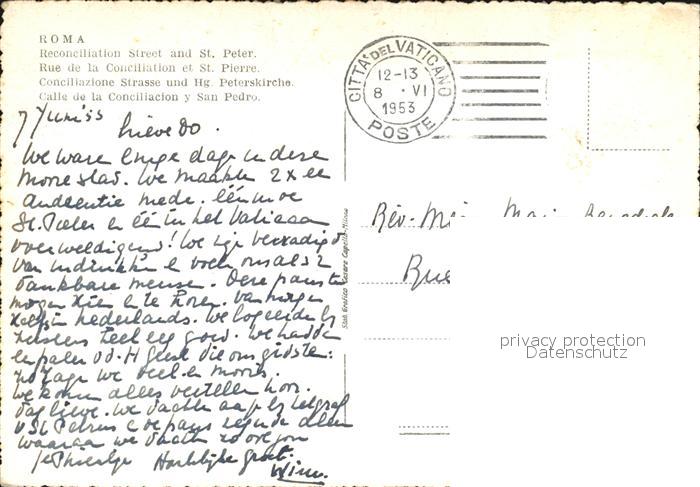 ROMA
Reconciliation Street and St. Peter.
Rue de la Conciliation et St. Pierre.
Conciliazione Strasse und Hg. Peterskirche.
Calle de la Conciliacion y San Pedro.
CITTÀ DEL VATICANO
12-13
8 · VI
1953
POSTE
7 Juni 53
Lieve Do.
We waren enige dagen in deze
mooie stad. We maakten 2 x een
audientie mede. één in de
St. Pieter en één in het Vaticaan
overweldigend! We zijn verzadigd
van indrukken en voelen ons als 2
dankbare mensen. Deze paus te
mogen zien en te horen. van morgen
zelfs in nederlands. We logeerden bij
zusters heel erg goed. We hadden
een pater v.d. H. Geest die ons gidste.
zo zagen we veel en moois.
We komen alles vertellen hoor.
Dag lieve. We dachten aan je bij het graf
v St Petrus en de paus zegende allen
waaraan we dachten zo ook jou
je Hartelijke groet.
Wim.
Rév. Mè
Rue
Stab. Grafico Cesare Capello - Milano
privacy protection
Datenschutz